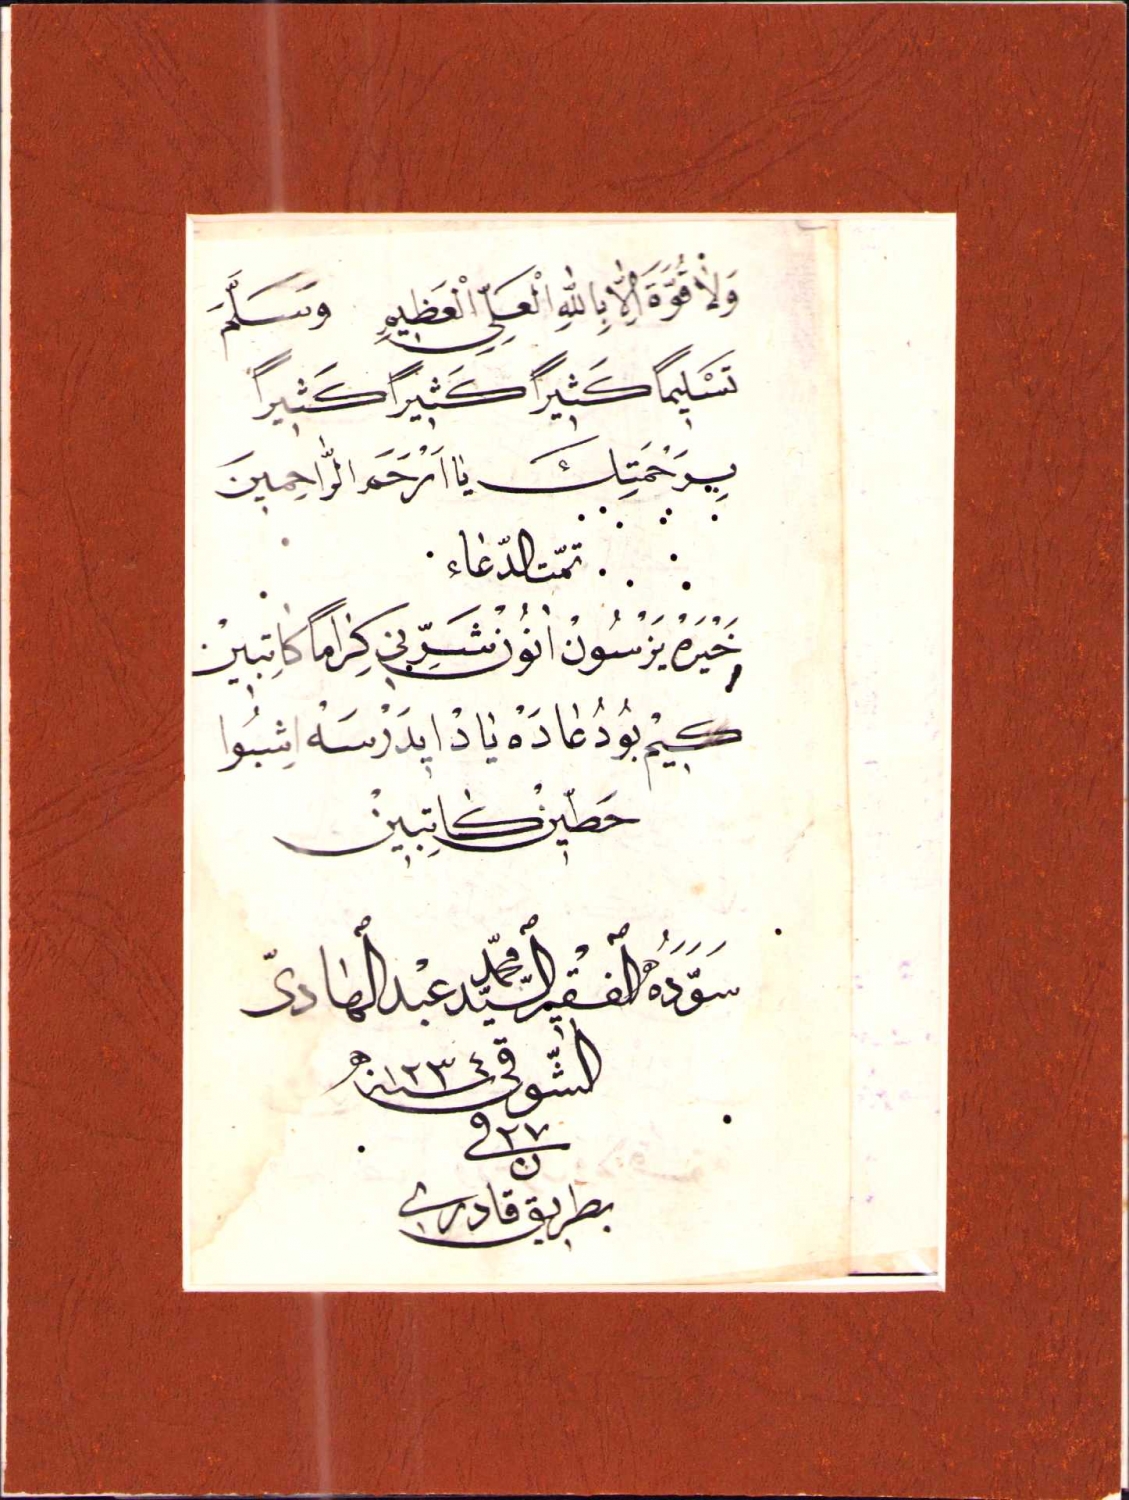 وَلَا قُوَّةَ اِلَّا بِاللهِ الْعَلِيِّ الْعَظِيمِ وَسَلَّمَ
تَسْلِيمًا كَثِيرًا كَثِيرًا كَثِيرًا
بِرَحْمَتِكَ يَا اَرْحَمَ الرَّاحِمِينَ
تمّت الدّعاء
خَيْرَهْ يَزْسُونْ اَنُوْن شَرِّنِي كِرَامًا كَاتِبِينْ
كِيمْ بُو دُعَادَهْ يَادْ ايدَرْسَهْ اِشْبُوا
حَطِّينْ كَاتِبِينْ
سَوَّدَهُ الفقير السّيّد محمّد عبْد الهادىّ
الشّوقى سنة ١٢٣٤ هـ
فى ٢٧ ن
بطريق قادرى